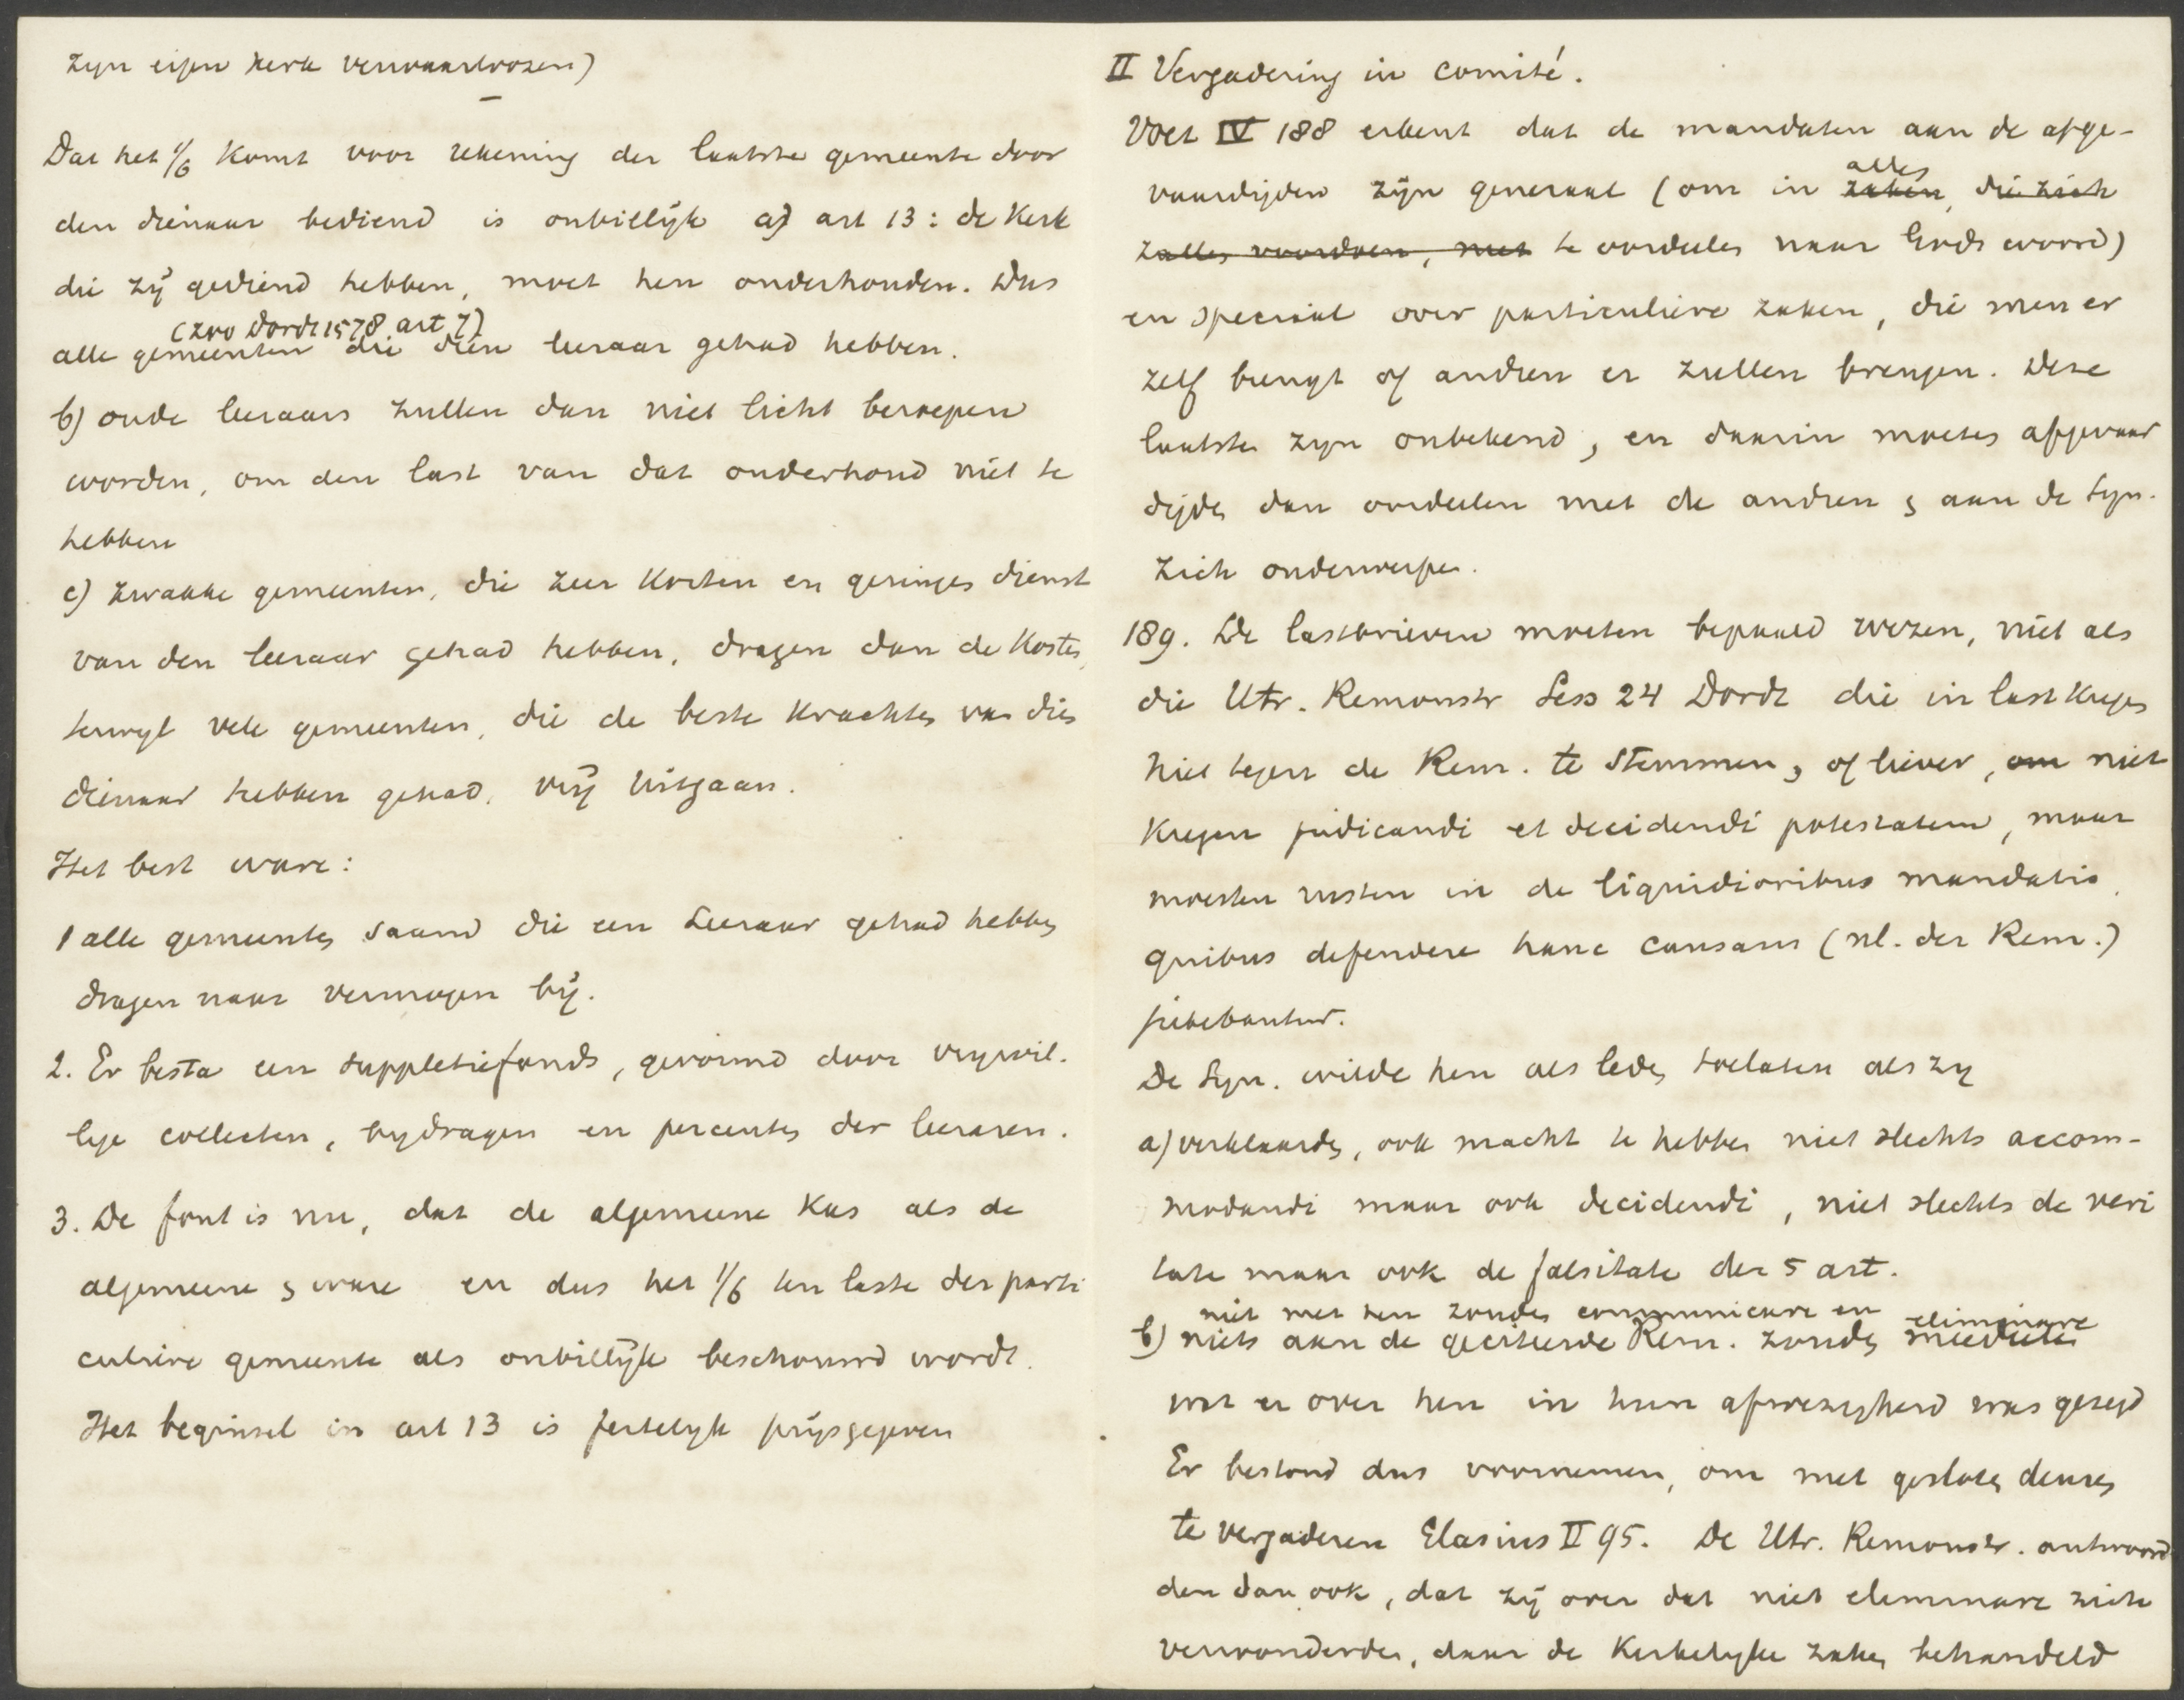 zyn eigen kerk verwaarloozen)
Dat het 1/6 komt voor rekening der laatste gemeente door
den dienaar bediend is onbillijk a) art 13: de kerk
die zij gediend hebben, moet hen onderhouden. Dus
(zoo Dordt 1578 art 7)
alle gemeenten die dien leeraar gehad hebben.
b) oude leeraars zullen dan niet licht beroepen
worden, om den last van dat onderhoud niet te
hebben
c) zwakke gemeenten, die zeer korten en geringen dienst
van den leeraar gehad hebben, dragen dan de kosten,
terwyl vele gemeenten, die de beste krachten van dien
dienaar hebben gehad, vrij uitgaan.
Het best ware:
1 alle gemeenten saam die een Leeraar gehad hebben
dragen naar vermogen bij.
2. Er besta een suppletiefonds, gevormd door vrywil.
lige collecten, bydragen en percenten der leeraren.
3. De fout is nu, dat de algemeene kas als de
algemeene s ware en dus het 1/6 ten laste der parti
culiere gemeente als onbillijk beschouwd wordt.
Het beginsel in art 13 is feitelyk prijsgegeven
II Vergadering in comité.
Voet IV 188 erkent dat de mandaten aan de afge-
vaardigden zijn generaal (om in zaken, die zich
alles
zalles voordoen, met te oordeelen naar Gods woord)
en speciaal over particuliere zaken, die men er
zelf brengt of andren er zullen brengen. Deze
laatste zyn onbekend, en daarin moeten afgevaar
digden dan oordeelen met de andren & aan de Syn.
zich onderwerpen.
189. De lastbrieven moeten bepaald wezen, niet als
die Utr. Remonstr Sess 24 Dordt die in last kregen
niet tegen de Rem. te stemmen, of liever, om niet
kregen judicandi et decidendi potestatem, maar
moesten rusten in de liquidioribus mandatis,
quibus defendere hanc causam (nl. der Rem.)
jubebantur.
De Syn. wilde hen als leden toelaten als zy
a) verklaarden, ook macht te hebben niet slechts accom-
modandi maar ook decidendi, niet slechts de veri
tate maar ook de falsitate der 5 art.
niet met hen zouden communicare en eliminare
b) niets aan de geciteerde Rem. zouden meedeelen
wat er over hen in hun afwezigheid was gezegd
Er bestond dus voornemen, om met gesloten deuren
te vergaderen Glasius II 95. De Utr. Remonstr. antwoord
den dan ook, dat zij over dat niet elimminare zich
verwonderden, daar de kerkelyke zaken behandeld